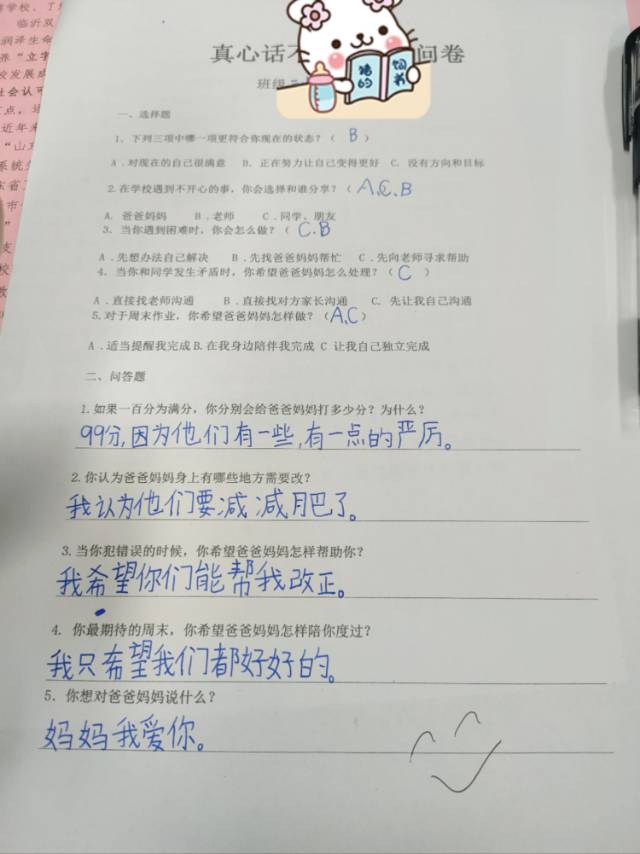 真心话不
问卷
班级
猪的
饲书
一、选择题
1、下列三项中哪一项更符合你现在的状态？（ B ）
A .对现在的自己很满意 B. 正在努力让自己变得更好 C. 没有方向和目标
2.在学校遇到不开心的事，你会选择和谁分享？（ A,C,B
A. 爸爸妈妈 B .老师 C .同学、朋友
3. 当你遇到困难时，你会怎么做？（ C.B ）
A .先想办法自己解决 B .先找爸爸妈妈帮忙 C .先向老师寻求帮助
4. 当你和同学发生矛盾时，你希望爸爸妈妈怎么处理？（ C ）
A .直接找老师沟通 B .直接找对方家长沟通 C. 先让我自己沟通
5.对于周末作业，你希望爸爸妈妈怎样做？（A,C）
A .适当提醒我完成 B.在我身边陪伴我完成 C 让我自己独立完成
二、问答题
1.如果一百分为满分，你分别会给爸爸妈妈打多少分？为什么？
99分,因为他们有一些,有一点的严厉。
2.你认为爸爸妈妈身上有哪些地方需要改？
我认为他们要减减肥了。
3.当你犯错误的时候，你希望爸爸妈妈怎样帮助你？
我希望你们能帮我改正。
4. 你最期待的周末，你希望爸爸妈妈怎样陪你度过？
我只希望我们都好好的。
5. 你想对爸爸妈妈说什么？
妈妈我爱你。